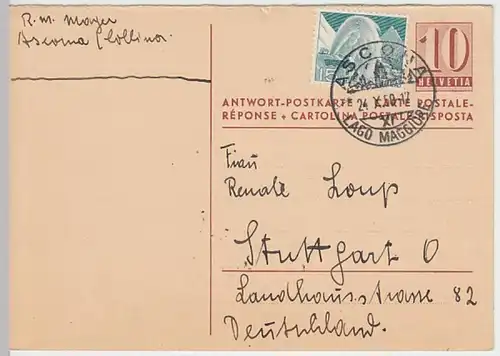 R. M. Mayer
Ascona (Collina)
10
HELVETIA
ASCONA
24.X.50-17
XI
LAGO MAGGIORE
ANTWORT-POSTKARTE CARTE POSTALE-
RÉPONSE + CARTOLINA POSTALE RISPOSTA
Frau
Renate Loup
Stuttgart O
Landhausstrasse 82
Deutschland.